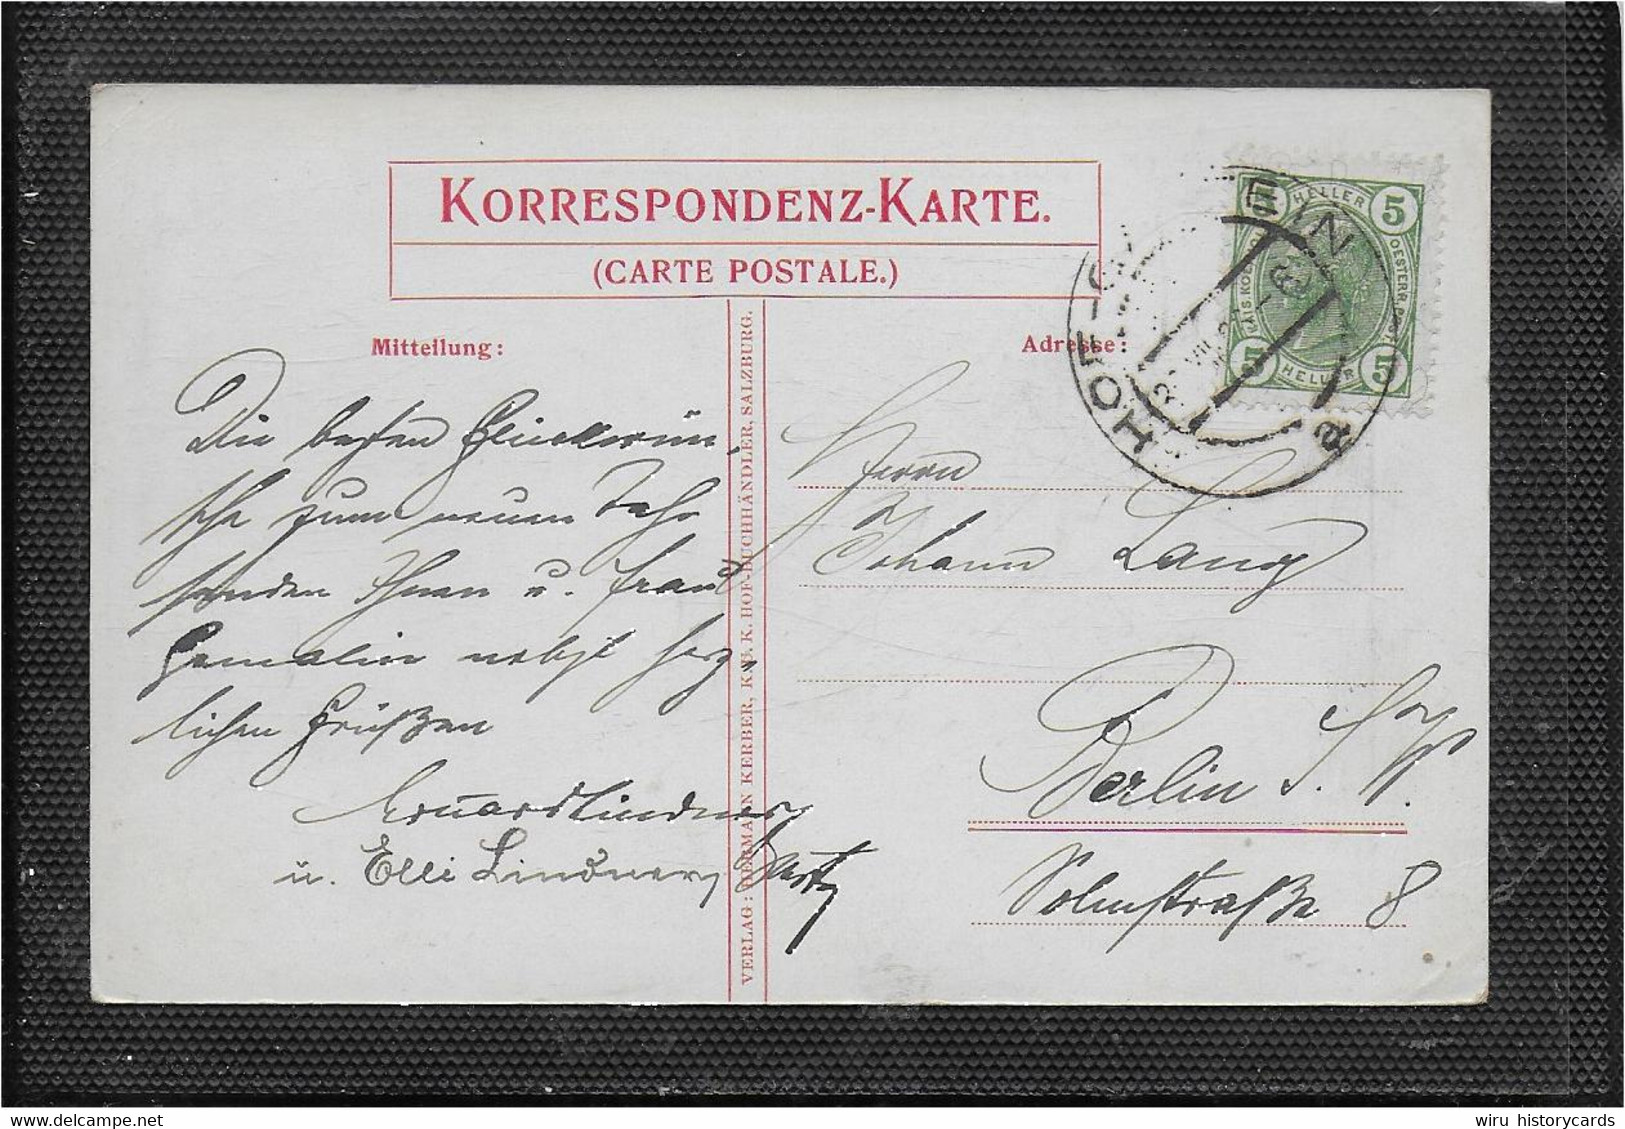 KORRESPONDENZ-KARTE.
(CARTE POSTALE.)
Mitteilung:
Die besten Glückwün,
sche zum neuen Jahr
senden Ihnen u. Frau
Gemalin nebst herz,
lichen Grüßen
Eduard Lindner
u. Elli Lindner,
VERLAG: HERMAN KERBER, K. U. K. HOF-BUCHHÄNDLER, SALZBURG.
Adresse:
HELLER
5
5
5
HELLER
HOFGASTEIN
Herrn
Johann Lang
Berlin S.
Solmstraße 8
wiru historycards